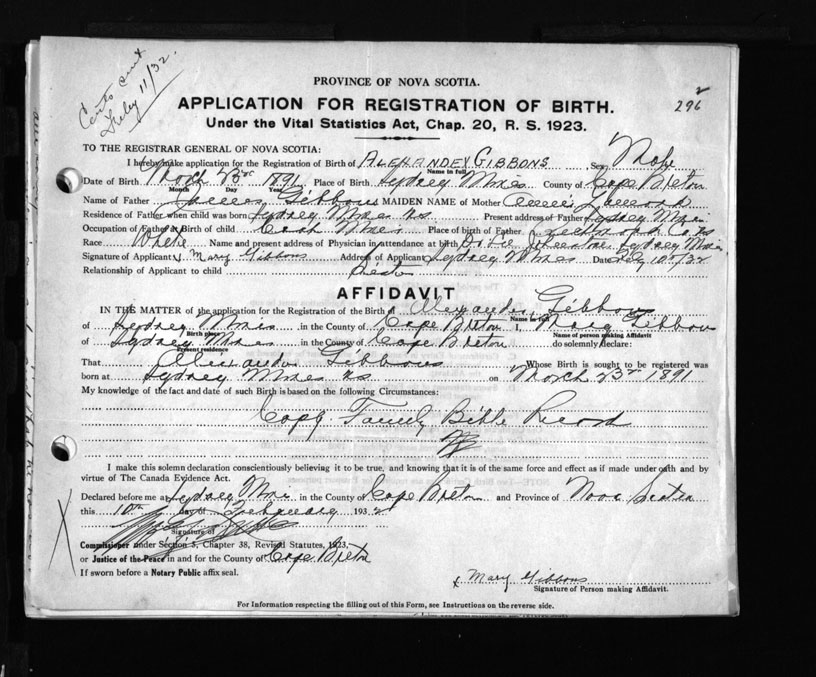 Feby 11/32.
PROVINCE OF NOVA SCOTIA.
296 2
APPLICATION FOR REGISTRATION OF BIRTH.
Under the Vital Statistics Act, Chap. 20, R. S. 1923.
TO THE REGISTRAR GENERAL OF NOVA SCOTIA:
I hereby make application for the Registration of Birth of ALEXANDER GIBBONS Sex Male
Name in full
Date of Birth March 23rd 1891 Place of Birth Sydney Mines County of Cape Breton
Month Day Year
Name of Father James Gibbons MAIDEN NAME of Mother
Residence of Father when child was born Sydney Mines NS Present address of Father Sydney Mines
Occupation of Father at Birth of child Coal Mines Place of birth of Father
Race White Name and present address of Physician in attendance at birth Dr Sydney Mines
Signature of Applicant x Mary Gibbons Address of Applicant Sydney Mines Date Feby 10th/32
Relationship of Applicant to child Sister
AFFIDAVIT
IN THE MATTER of the application for the Registration of the Birth of Alexander Gibbons
Name in full
of Sydney Mines in the County of Cape Breton I, Mary Gibbons
Birth place Name of person making Affidavit
of Sydney Mines in the County of Cape Breton do solemnly declare:
Present residence
That Alexander Gibbons Whose Birth is sought to be registered was
born at Sydney Mines NS on March 23rd 1891
My knowledge of the fact and date of such Birth is based on the following Circumstances:
Copy Family Bible Record
I make this solemn declaration conscientiously believing it to be true, and knowing that it is of the same force and effect as if made under oath and by
virtue of The Canada Evidence Act.
Declared before me at Sydney Mines in the County of Cape Breton and Province of Nova Scotia
this 10th day of February 1932
Signature of
Commissioner under Section 5, Chapter 38, Revised Statutes, 1923,
or Justice of the Peace in and for the County of Cape Breton
If sworn before a Notary Public affix seal.
x Mary Gibbons
Signature of Person making Affidavit.
For Information respecting the filling out of this Form, see Instructions on the reverse side.